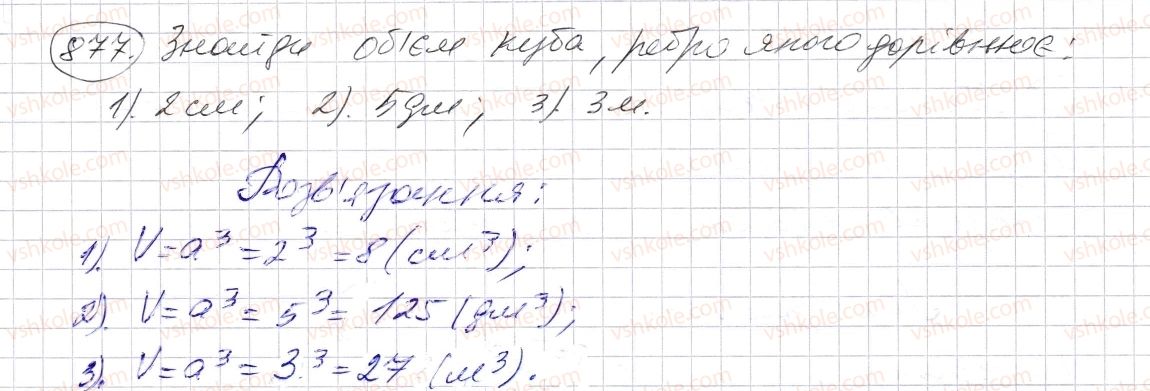 877. Знайди об'єм куба, ребро якого дорівнює:
1). 2 см; 2). 5 дм; 3). 3 м.
Розв'язання:
1). V=a³=2³=8 (см³);
2). V=a³=5³=125 (дм³);
3). V=a³=3³=27 (м³).